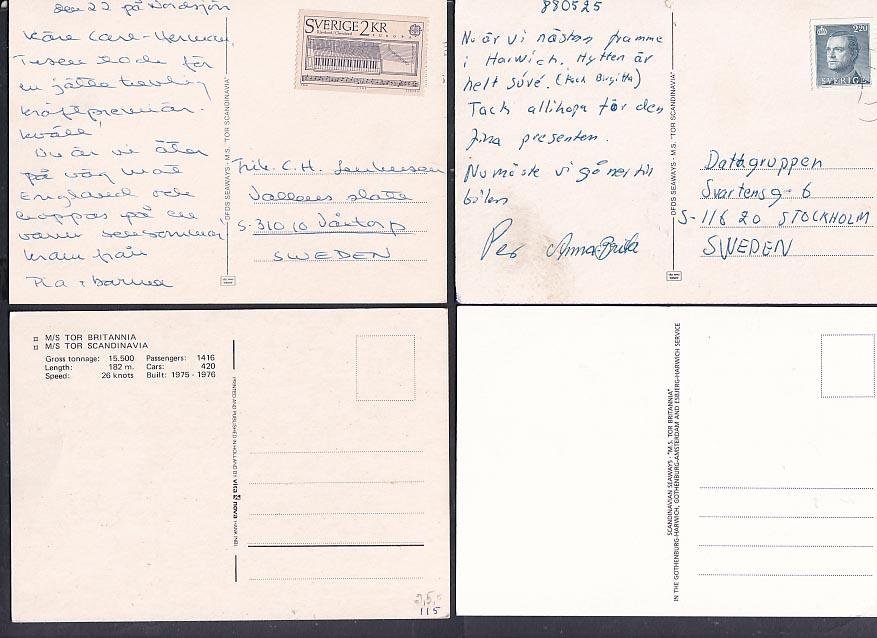 den 22 på Nordsjön
Kära Carl-Herman,
Tusen Tack för
en jätte trevlig
kräftpremiär-
kväll!
Nu är vi åter
på väg mot
England och
hoppas på en
varm sensommar
kram från
Pia + barnen
SVERIGE 2 KR
EUROPA
DFDS SEAWAYS - M.S. "TOR SCANDINAVIA"
C.H.
Vallens slott
S-310 10 Våxtorp
SWEDEN
880525
Nu är vi nästan framme
i Harwich. Hytten är
helt suvé. (Tack Birgitta)
Tack allihopa för den
fina presenten.
Nu måste vi gå ner till
bilen
Per Anna-Brita
DFDS SEAWAYS - M.S. "TOR SCANDINAVIA"
2.20
SVERIGE
Datagruppen
Svartensg. 6
S-116 20 STOCKHOLM
SWEDEN
M/S TOR BRITANNIA
M/S TOR SCANDINAVIA
Gross tonnage: 15.500 Passengers: 1416
Length: 182 m. Cars: 420
Speed: 26 knots Built: 1975 - 1976
PRINTED AND PUBLISHED IN HOLLAND BY vita nova HAARLEM
115
SCANDINAVIAN SEAWAYS - "M.S. TOR BRITANNIA"
IN THE GOTHENBURG-HARWICH, GOTHENBURG-AMSTERDAM AND ESBJERG-HARWICH SERVICE